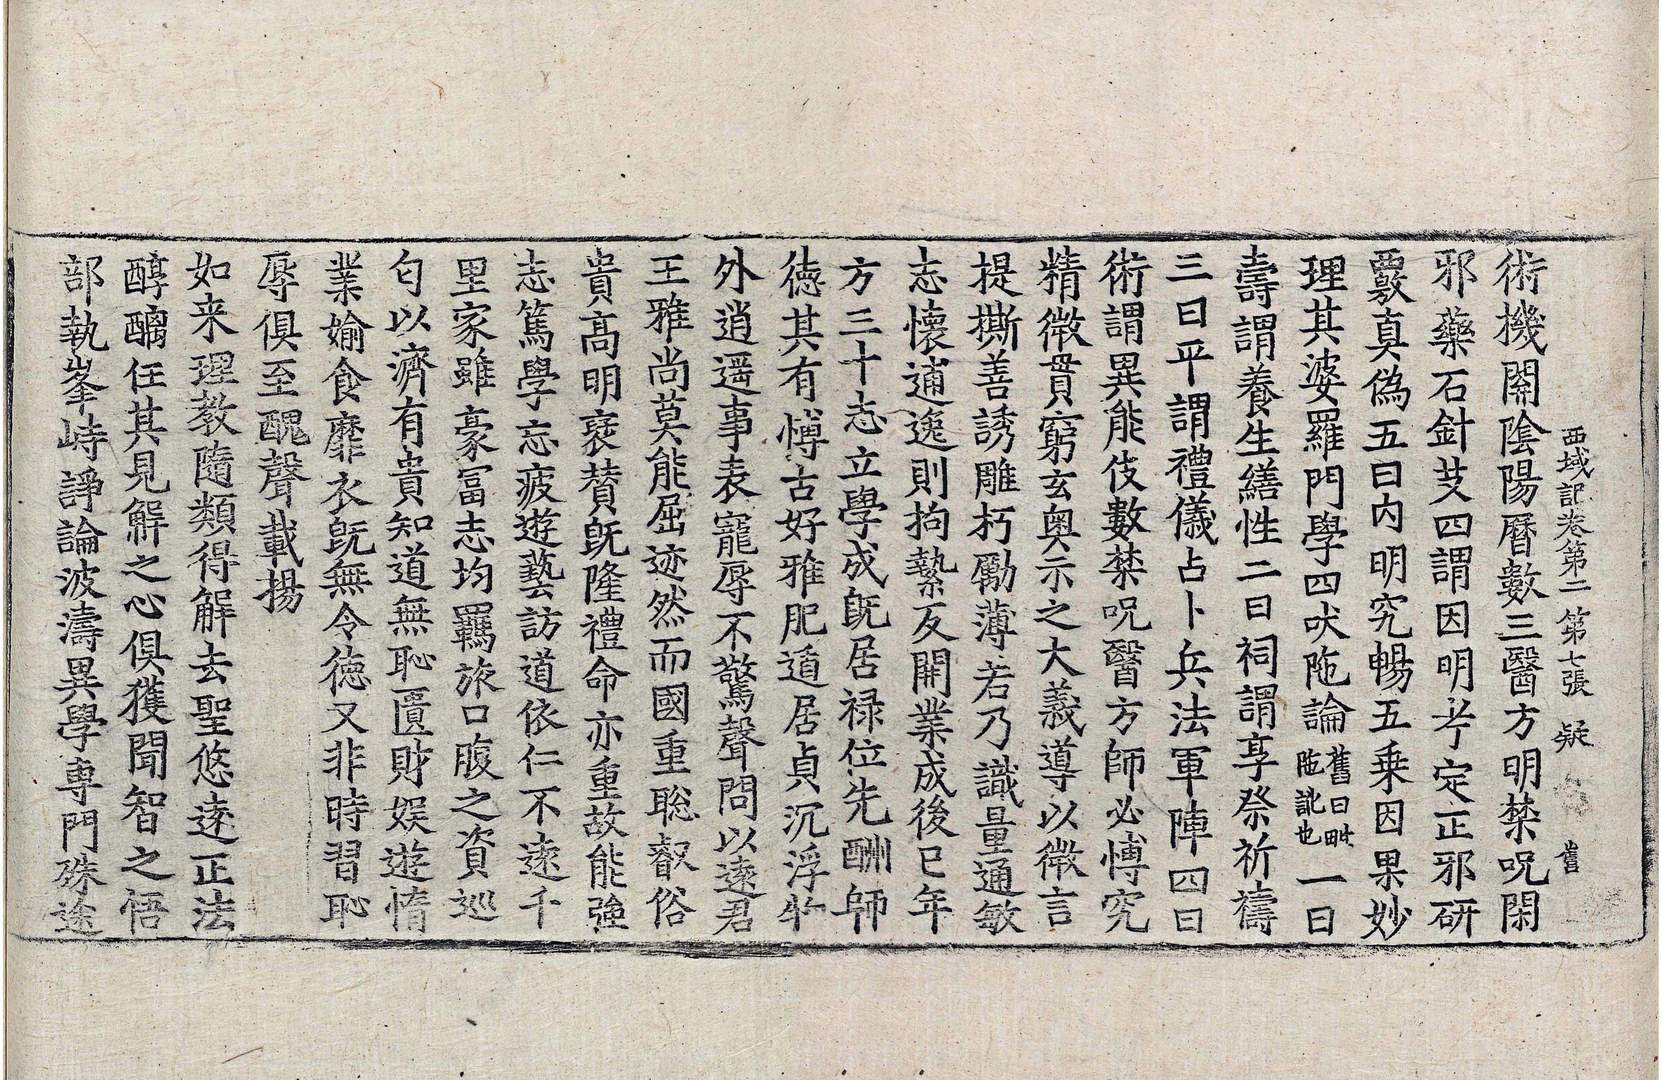 西域記卷第二 第七張 疑
術機關陰陽曆數三醫方明禁呪閑
邪藥石針艾四謂因明考定正邪研
覈真偽五曰内明究暢五乗因果妙
理其婆羅門學四吠陁論舊曰毗陁訛也一曰
壽謂養生繕性二曰祠謂享祭祈禱
三曰平謂禮儀占卜兵法軍陣四曰
術謂異能伎數禁呪醫方師必愽究
精微貫窮玄奥示之大義導以微言
提撕善誘雕朽勵薄若乃識量通敏
志懷逋逸則拘縶反開業成後已年
方三十志立學成旣居禄位先酬師
德其有愽古好雅肥遁居貞沉浮物
外逍遥事表寵辱不驚聲問以遠君
王雅尚莫能屈迹然而國重聡叡俗
貴高明襃賛旣隆禮命亦重故能强
志篤學忘疲遊藝訪道依仁不遠千
里家雖豪冨志均羈旅口腹之資巡
匃以濟有貴知道無恥匱財娱遊惰
業媮食靡衣旣無令德又非時習恥
辱俱至醜聲載揚
如来理教隨類得解去聖悠遠正法
醇醨任其見解之心俱獲聞智之悟
部執峯峙諍論波濤異學專門殊途